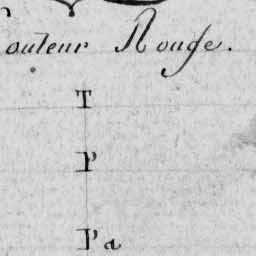 outeur Rouge.
T
P
Pa